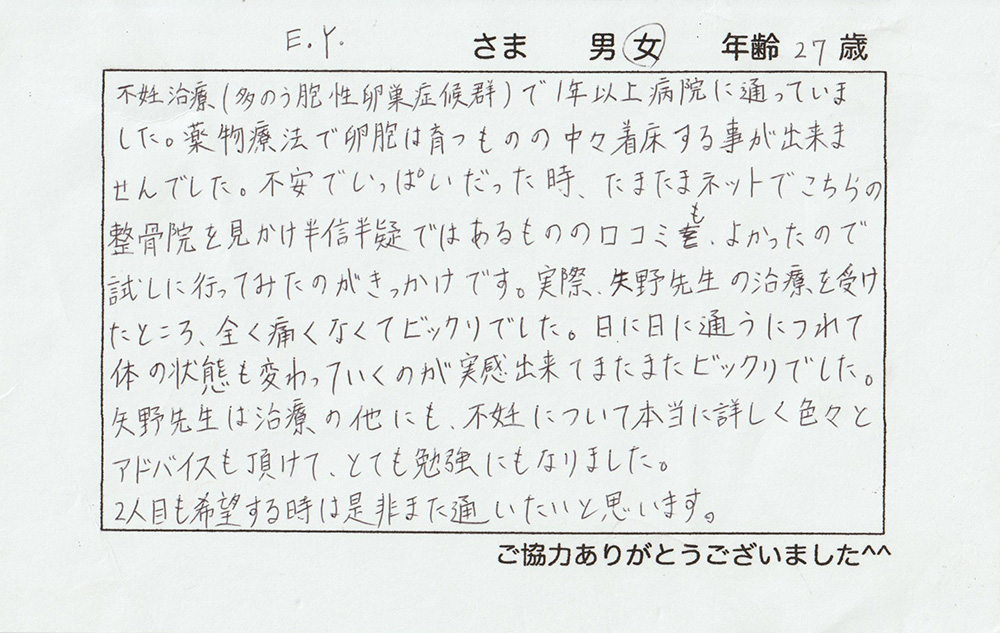 E.Y. さま 男 女 年齢 27 歳
不妊治療(多のう胞性卵巣症候群)で1年以上病院に通っていま
した。薬物療法で卵胞は育つものの中々着床する事が出来ま
せんでした。不安でいっぱいだった時、たまたまネットでこちらの
整骨院を見かけ半信半疑ではあるものの口コミも、よかったので
試しに行ってみたのがきっかけです。実際、矢野先生の治療を受け
たところ、全く痛くなくてビックリでした。日に日に通うにつれて
体の状態も変わっていくのが実感出来てまたまたビックリでした。
矢野先生は治療の他にも、不妊について本当に詳しく色々と
アドバイスも頂けて、とても勉強にもなりました。
2人目も希望する時は是非また通いたいと思います。
ご協力ありがとうございました^^